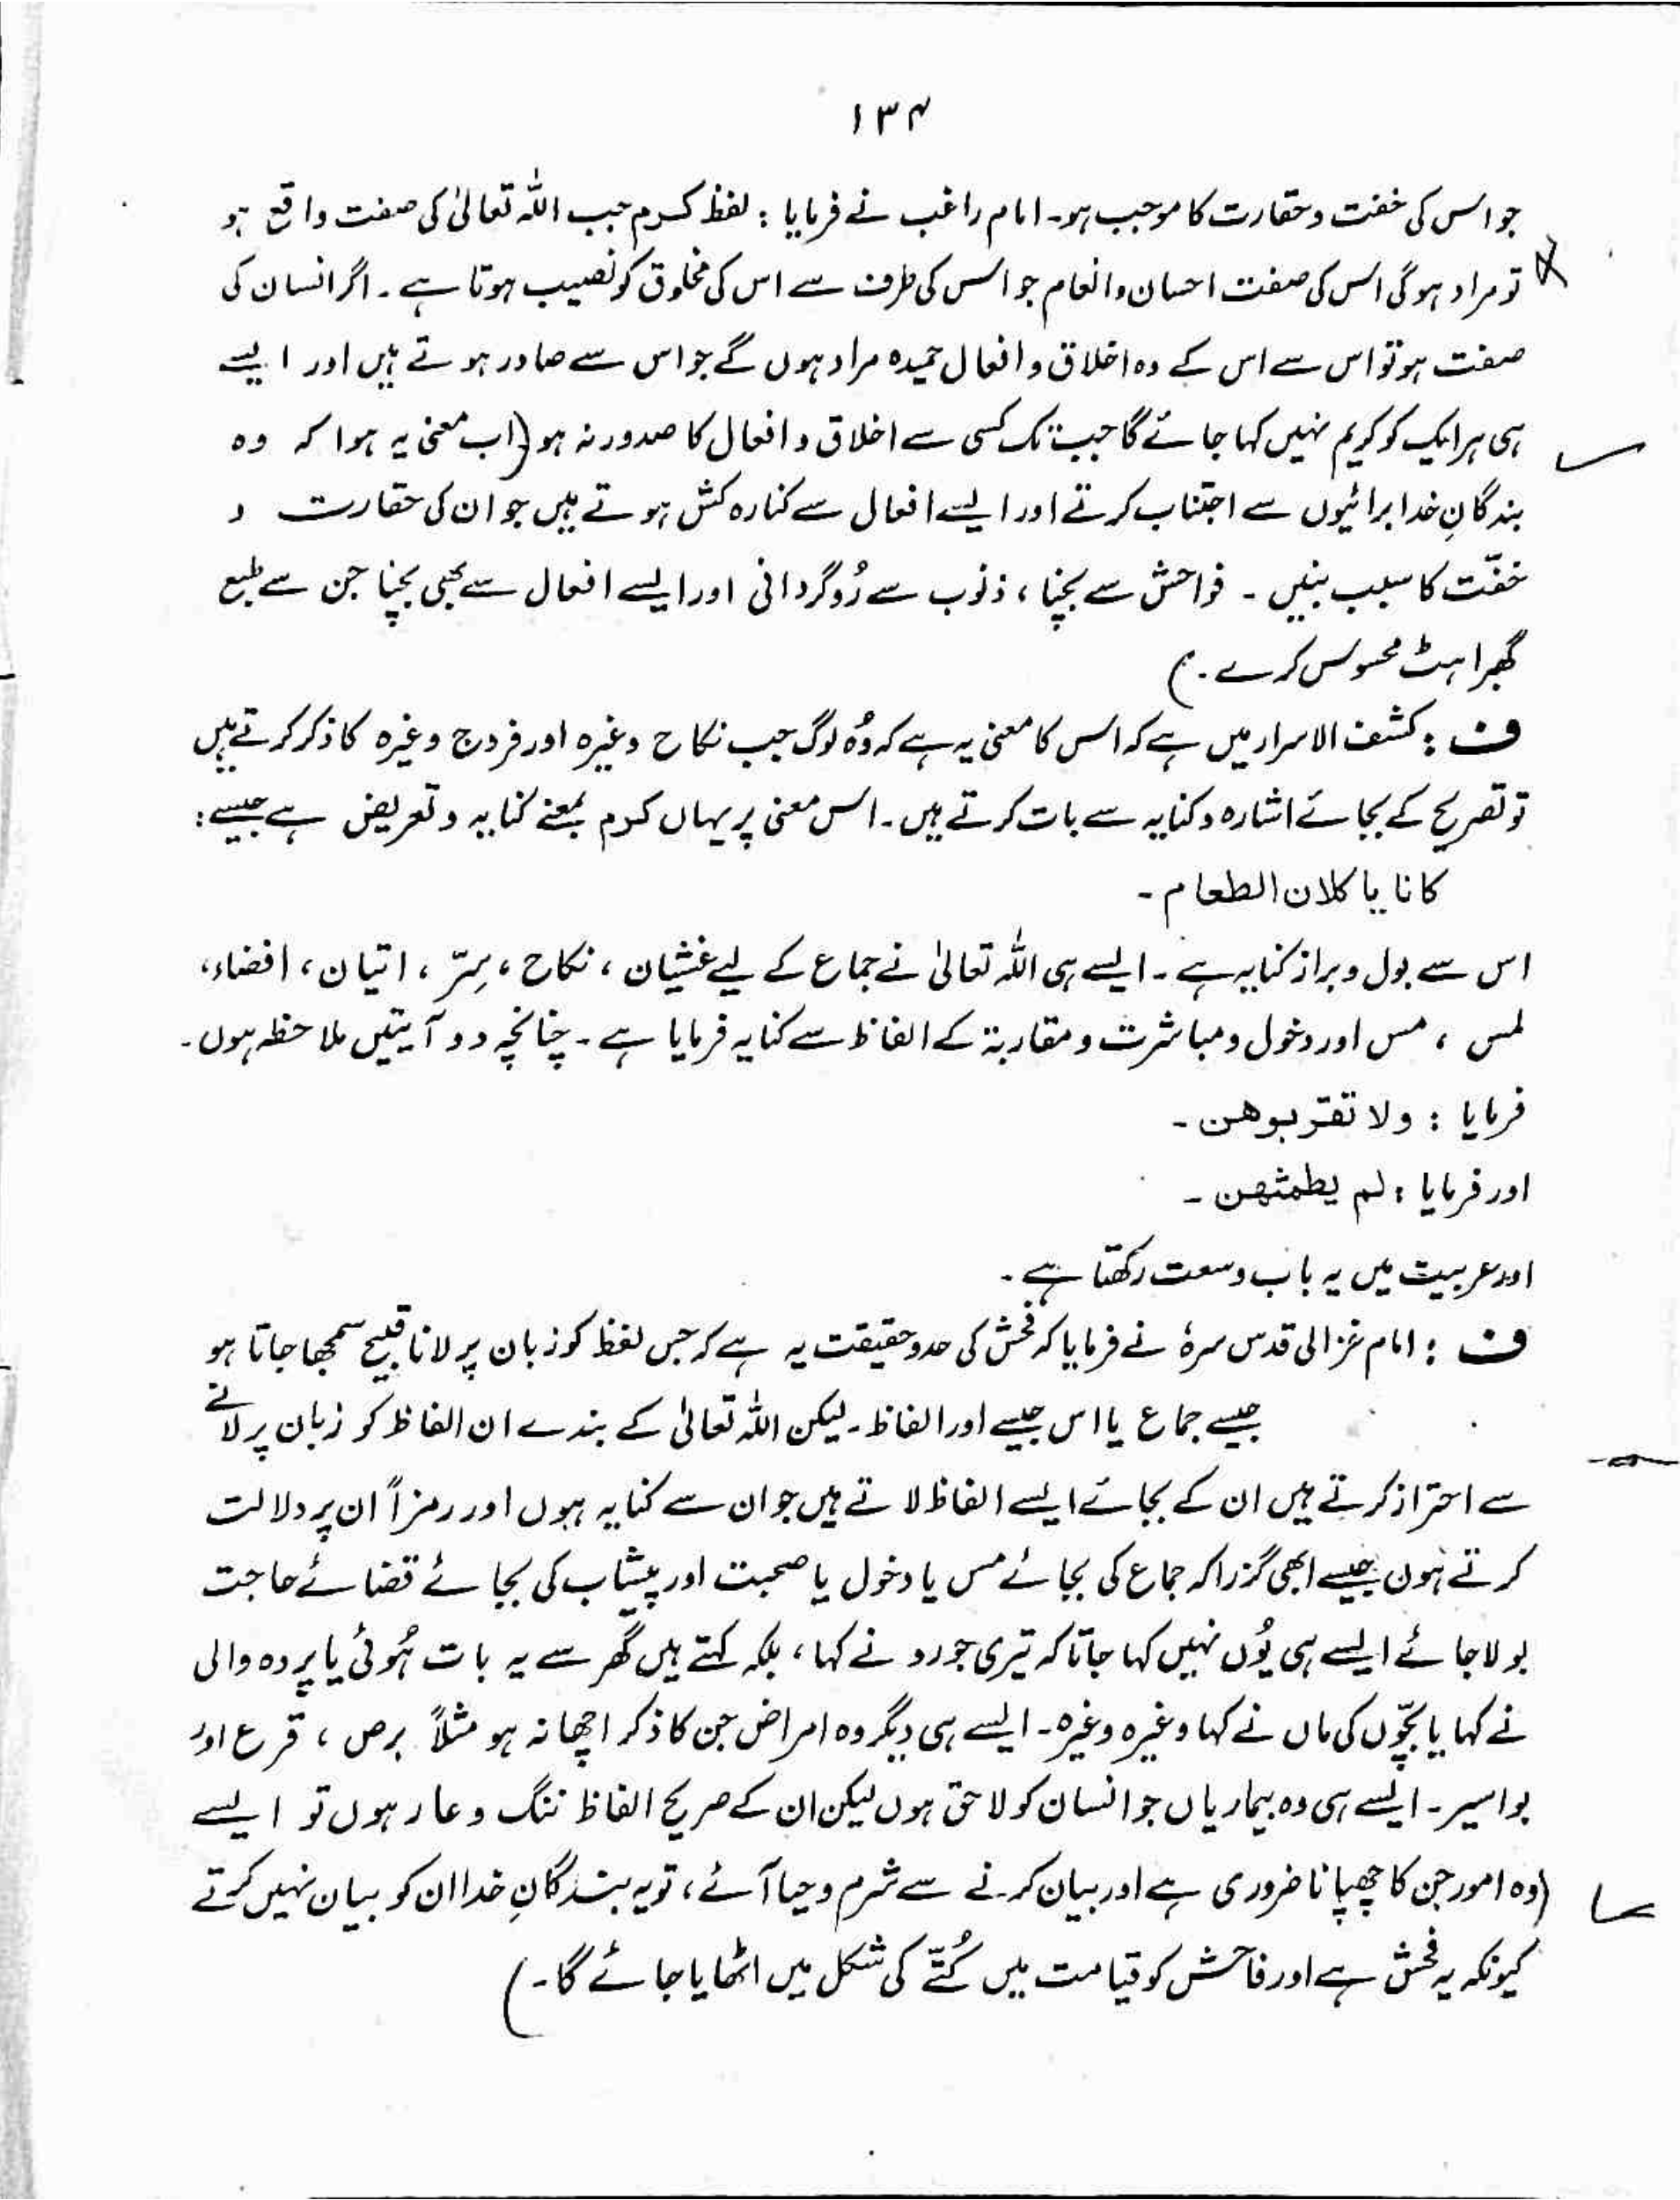 ۱۳۴
جو اس کی خفت و حقارت کا موجب ہو۔ امام راغب نے فرمایا : لفظ کرم جب اللہ تعالیٰ کی صفت واقع ہو
تو مراد ہوگی اس کی صفت احسان و انعام جو اس کی طرف سے اس کی مخلوق کو نصیب ہوتا ہے۔ اگر انسان کی
صفت ہو تو اس سے اس کے وہ اخلاق و افعال حمیدہ مراد ہوں گے جو اس سے صادر ہوتے ہیں اور ایسے
ہی ہر ایک کو کریم نہیں کہا جائے گا جب تک کسی سے اخلاق و افعال کا صدور نہ ہو (اب معنی یہ ہوا کہ وہ
بندگانِ خدا برائیوں سے اجتناب کرتے اور ایسے افعال سے کنارہ کش ہوتے ہیں جو ان کی حقارت و
خفّت کا سبب بنیں ۔ فواحش سے بچنا ، ذنوب سے رُوگردانی اور ایسے افعال سے بھی بچنا جن سے طبع
گھبراہٹ محسوس کرے۔)
ف : کشف الاسرار میں ہے کہ اس کا معنی یہ ہے کہ وُہ لوگ جب نکاح وغیرہ اور فروج وغیرہ کا ذکر کرتے ہیں
تو تصریح کے بجائے اشارہ و کنایہ سے بات کرتے ہیں۔ اس معنی پر یہاں کرم بمعنے کنایہ و تعریض ہے جیسے :
کانا یاکلان الطعام ۔
اس سے بول و براز کنایہ ہے ۔ ایسے ہی اللہ تعالیٰ نے جماع کے لیے غشیان ، نکاح ، سِرّ ، اتیان ، افضاء ،
لمس ، مس اور دخول و مباشرت و مقاربۃ کے الفاظ سے کنایہ فرمایا ہے ۔ چنانچہ دو آیتیں ملاحظہ ہوں ۔
فرمایا : ولا تقربوھن ۔
اور فرمایا : لم یطمثھن ۔
اور عربیت میں یہ باب وسعت رکھتا ہے ۔
ف : امام غزالی قدس سرہٗ نے فرمایا کہ فحش کی حد و حقیقت یہ ہے کہ جس لفظ کو زبان پر لانا قبیح سمجھا جاتا ہو
جیسے جماع یا اس جیسے اور الفاظ ۔ لیکن اللہ تعالیٰ کے بندے ان الفاظ کو زبان پر لانے
سے احتراز کرتے ہیں ان کے بجائے ایسے الفاظ لاتے ہیں جو ان سے کنایہ ہوں اور رمزاً ان پر دلالت
کرتے ہوں جیسے ابھی گزرا کہ جماع کی بجائے مس یا دخول یا صحبت اور پیشاب کی بجائے قضائے حاجت
بولا جائے ایسے ہی یُوں نہیں کہا جاتا کہ تیری جورو نے کہا ، بلکہ کہتے ہیں گھر سے یہ بات ہُوئی یا پردہ والی
نے کہا یا بچّوں کی ماں نے کہا وغیرہ وغیرہ ۔ ایسے ہی دیگر وہ امراض جن کا ذکر اچھا نہ ہو مثلاً برص ، قرع اور
بواسیر ۔ ایسے ہی وہ بیماریاں جو انسان کو لاحق ہوں لیکن ان کے صریح الفاظ ننگ و عار ہوں تو ایسے
(وہ امور جن کا چھپانا ضروری ہے اور بیان کرنے سے شرم و حیا آئے ، تو یہ بندگانِ خدا ان کو بیان نہیں کرتے
کیونکہ یہ فحش ہے اور فاحش کو قیامت میں کُتّے کی شکل میں اٹھایا جائے گا ۔)